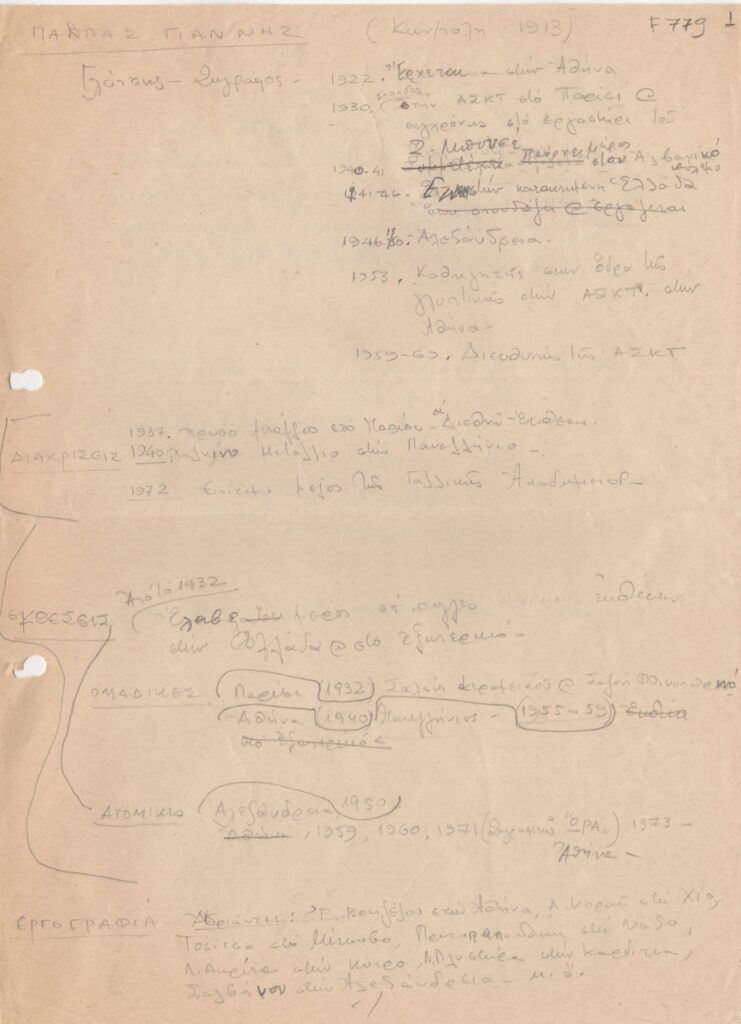 ΠΑΠΠΑΣ ΓΙΑΝΝΗΣ (Κων/πολη 1913) F779 1
Γλύπτης - Ζωγράφος - 1922. Έρχεται - στην Αθήνα
1930. Σπουδές στην ΑΣΚΤ στο Παρίσι @
συγχρόνως στο εργαστήρι του
1940-41 Πήρε μέρος στον Αλβανικό
1941-46. στην κατεχόμενη Ελλάδα
1946-50. - Αλεξάνδρεια -
1953. Καθηγητής στην έδρα της
γλυπτικής στην ΑΣΚΤ. στην
Αθήνα -
1959-69. Διευθυντής της ΑΣΚΤ
1937. χρυσό μετάλλιο στο Παρίσι - Διεθνή Έκθεση.
ΔΙΑΚΡΙΣΕΙΣ 1940. χάλκινο μετάλλιο στην Πανελλήνιο -
1972 - μέλος της Γαλλικής Ακαδημείας -
Από το 1932
ΕΚΘΕΣΕΙΣ Έλαβε μέρος σε εκθέσεις
στην Ελλάδα @ στο εξωτερικό -
ΟΜΑΔΙΚΕΣ Παρίσι (1932) Σαλόνι @
- Αθήνα (1940) Πανελλήνιος - (1955-59)
στο εξωτερικό
ΑΤΟΜΙΚΕΣ Αλεξάνδρεια 1950
Αθήνα, 1959, 1960, 1971 (ΩΡΑ) 1973 -
Αθήνα -
ΕΡΓΟΓΡΑΦΙΑ Ανδριάντες: Ε. Βενιζέλος στην Αθήνα, Α. Κοραή στη Χίο,
Τοσίτσα στο Μέτσοβο, στη Νάξο,
Λ. Ακρίτα στην Κύπρο, Ν. Πλαστήρα στην Καρδίτσα,
στην Αλεξάνδρεια - κ.ά.